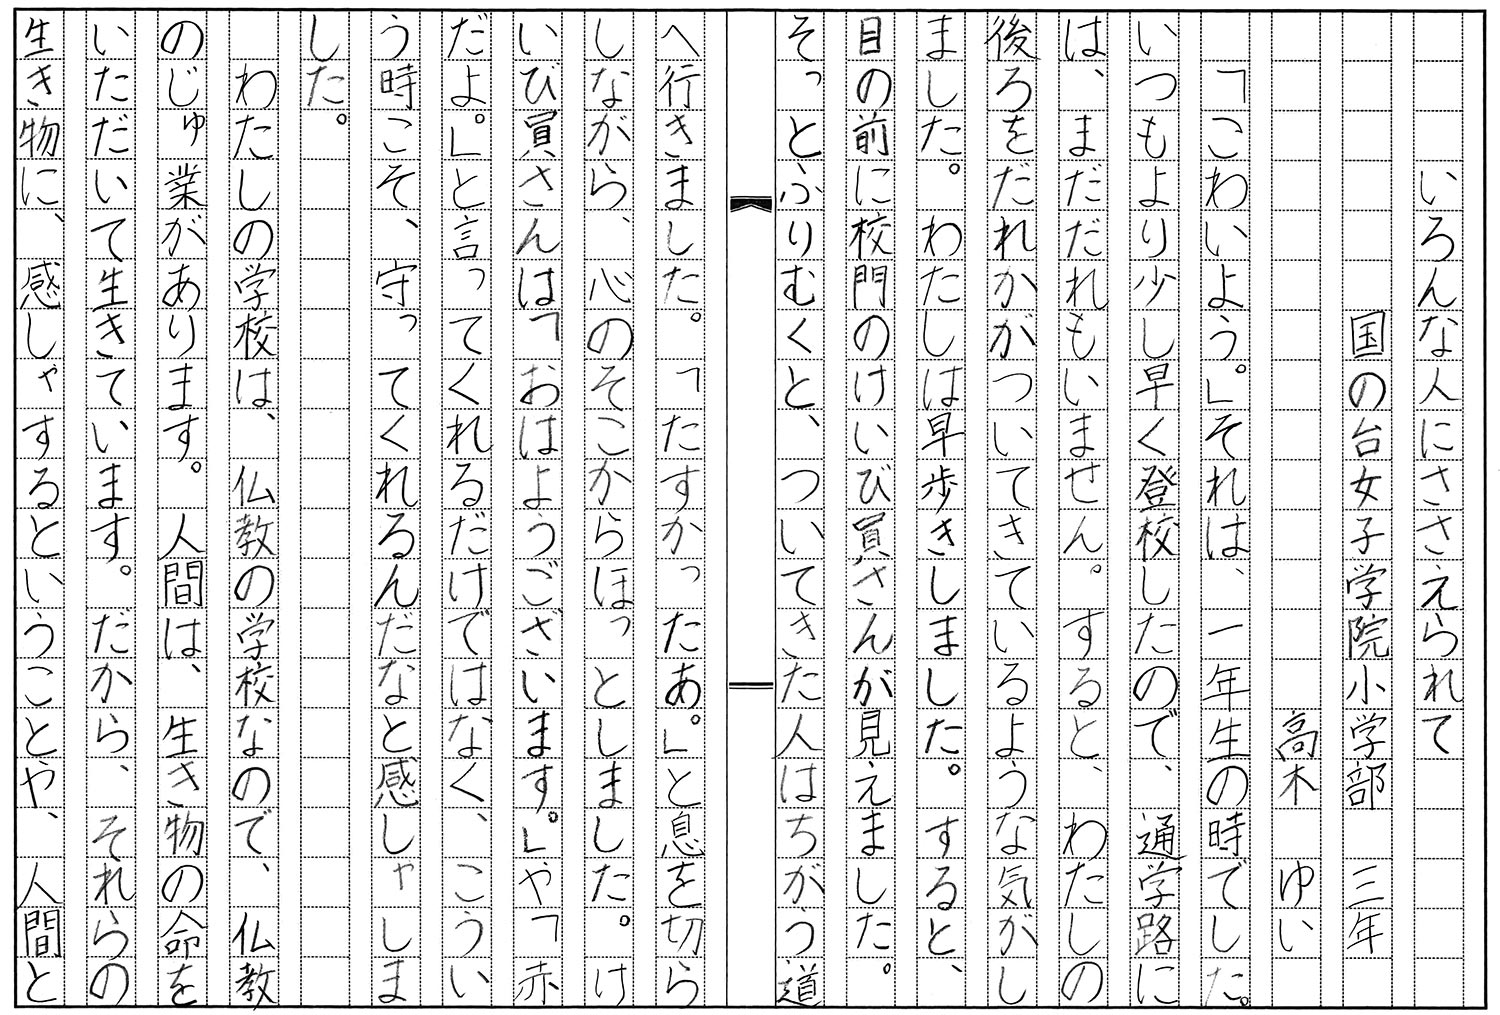 いろんな人にささえられて
国の台女子学院小学部　三年
高木　ゆい
「こわいよう。」それは、一年生の時でした。
いつもより少し早く登校したので、通学路に
は、まだだれもいません。すると、わたしの
後ろをだれかがついてきているような気がし
ました。わたしは早歩きしました。すると、
目の前に校門のけいび員さんが見えました。
そっとふりむくと、ついてきた人はちがう道
へ行きました。「たすかったあ。」と息を切ら
しながら、心のそこからほっとしました。け
いび員さんは「おはようございます。」や「赤
だよ。」と言ってくれるだけではなく、こうい
う時こそ、守ってくれるんだなと感しゃしま
した。
わたしの学校は、仏教の学校なので、仏教
のじゅ業があります。人間は、生き物の命を
いただいて生きています。だから、それらの
生き物に、感しゃするということや、人間と